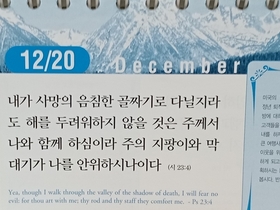 12/20
December
내가 사망의 음침한 골짜기로 다닐지라
도 해를 두려워하지 않을 것은 주께서
나와 함께 하심이라 주의 지팡이와 막
대기가 나를 안위하시나이다 (시 23:4)
Yea, though I walk through the valley of the shadow of death, I will fear no
evil: for thou art with me; thy rod and thy staff they comfort me. - Ps 23:4